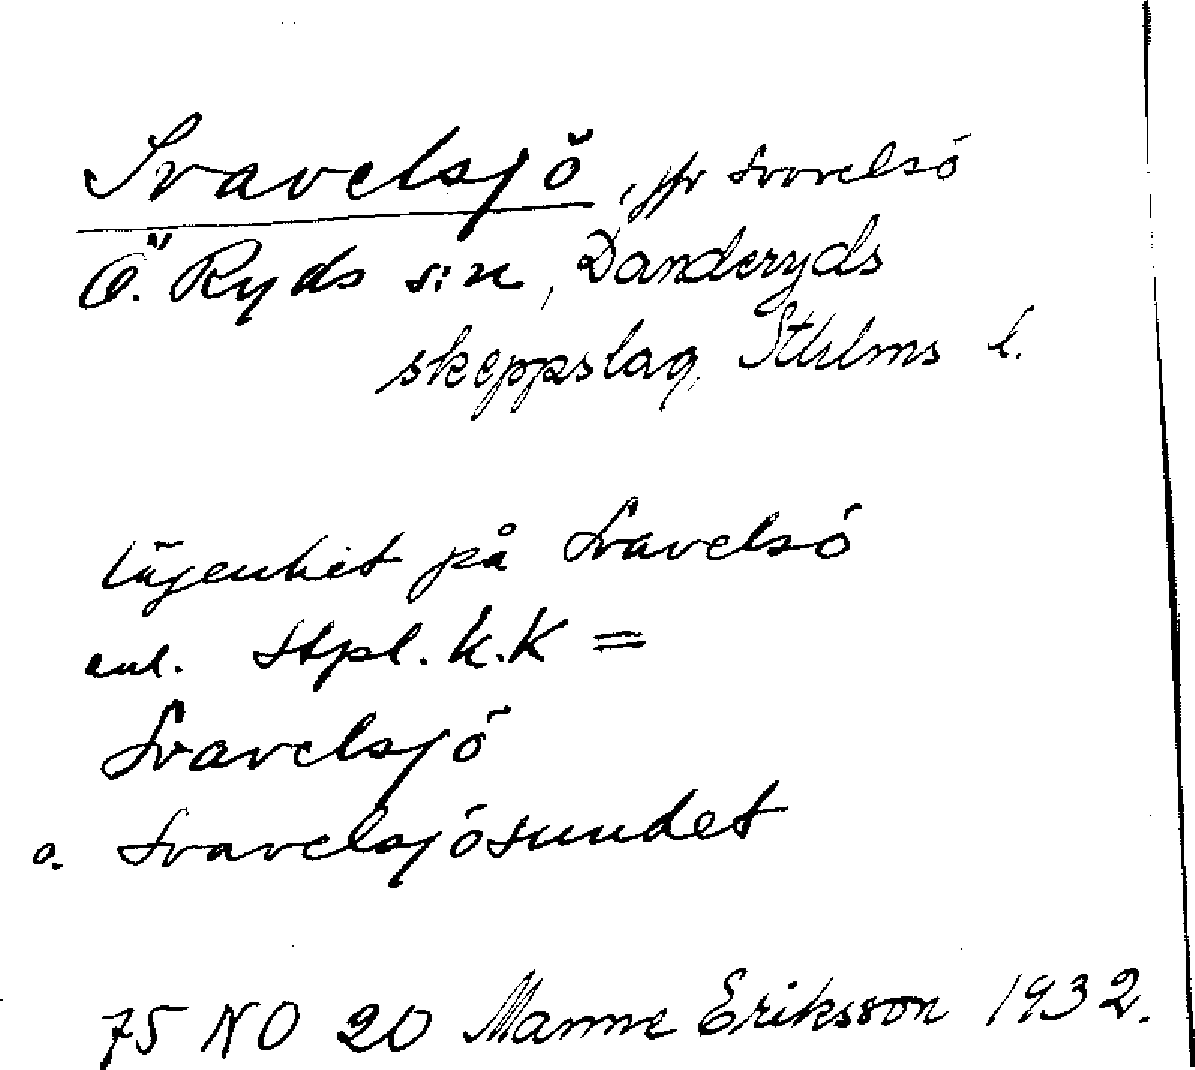 Svavelsjö, jfr Svavelsö
Ö. Ryds s:n, Danderyds
skeppslag, Sthlms l.
lägenhet på Svavelsö
enl. Stpl. k.K =
Svavelsjö
o. Svavelsjösundet
75 NO 20 Manne Eriksson 1932.